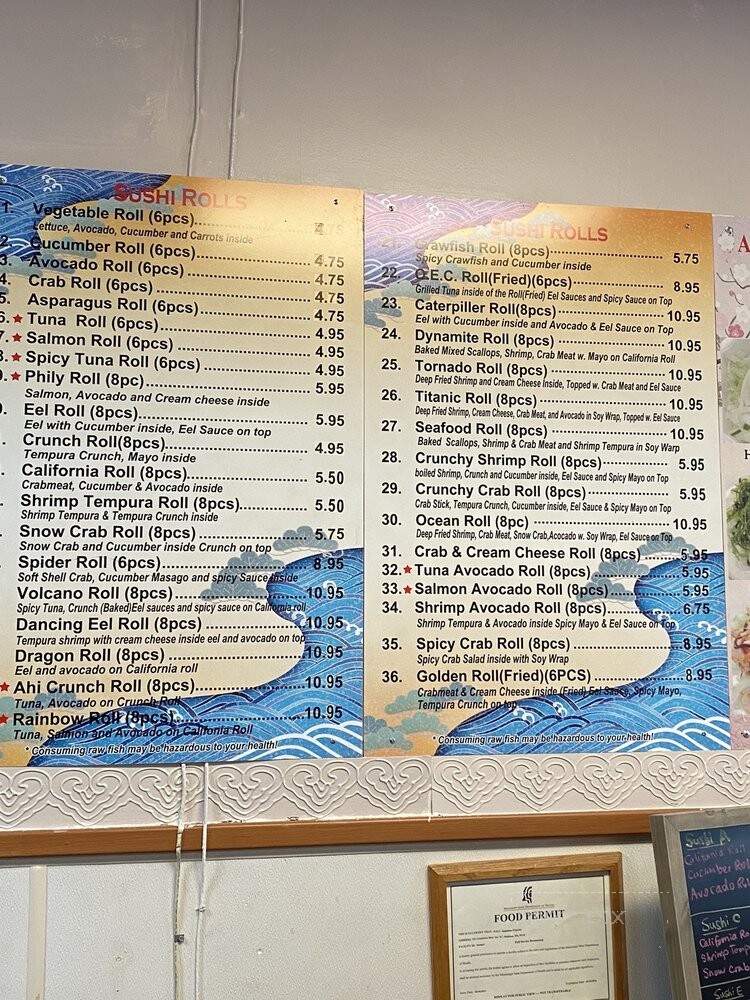 SUSHI ROLLS
1. Vegetable Roll (6pcs)
Lettuce, Avocado, Cucumber and Carrots inside
2. Cucumber Roll (6pcs) 4.75
3. Avocado Roll (6pcs) 4.75
4. Crab Roll (6pcs) 4.75
5. Asparagus Roll (6pcs) 4.75
6. ★ Tuna Roll (6pcs) 4.95
7. ★ Salmon Roll (6pcs) 4.95
8. ★ Spicy Tuna Roll (6pcs) 4.95
9. ★ Phily Roll (8pc) 5.95
Salmon, Avocado and Cream cheese inside
Eel Roll (8pcs) 5.95
Eel with Cucumber inside, Eel Sauce on top
Crunch Roll(8pcs) 4.95
Tempura Crunch, Mayo inside
California Roll (8pcs) 5.50
Crabmeat, Cucumber & Avocado inside
Shrimp Tempura Roll (8pcs) 5.50
Shrimp Tempura & Tempura Crunch inside
Snow Crab Roll (8pcs) 5.75
Snow Crab and Cucumber inside Crunch on top
Spider Roll (6pcs) 8.95
Soft Shell Crab, Cucumber Masago and spicy Sauce inside
Volcano Roll (8pcs) 10.95
Spicy Tuna, Crunch (Baked)Eel sauces and spicy sauce on California roll
Dancing Eel Roll (8pcs) 10.95
Tempura shrimp with cream cheese inside eel and avocado on top
Dragon Roll (8pcs) 10.95
Eel and avocado on California roll
★ Ahi Crunch Roll (8pcs) 10.95
Tuna, Avocado on Crunch Roll
★ Rainbow Roll (8pcs) 10.95
Tuna, Salmon and Avocado on Califonia Roll
* Consuming raw fish may be hazardous to your health!
SUSHI ROLLS
21. Crawfish Roll (8pcs) 5.75
Spicy Crawfish and Cucumber inside
22. O.E.C. Roll(Fried)(6pcs) 8.95
Grilled Tuna inside of the Roll(Fried) Eel Sauces and Spicy Sauce on Top
23. Caterpiller Roll(8pcs) 10.95
Eel with Cucumber inside and Avocado & Eel Sauce on Top
24. Dynamite Roll (8pcs) 10.95
Baked Mixed Scallops, Shrimp, Crab Meat w. Mayo on California Roll
25. Tornado Roll (8pcs) 10.95
Deep Fried Shrimp and Cream Cheese Inside, Topped w. Crab Meat and Eel Sauce
26. Titanic Roll (8pcs) 10.95
Deep Fried Shrimp, Cream Cheese, Crab Meat, and Avocado in Soy Wrap, Topped w. Eel Sauce
27. Seafood Roll (8pcs) 10.95
Baked Scallops, Shrimp & Crab Meat and Shrimp Tempura in Soy Warp
28. Crunchy Shrimp Roll (8pcs) 5.95
boiled Shrimp, Crunch and Cucumber inside, Eel Sauce and Spicy Mayo on Top
29. Crunchy Crab Roll (8pcs) 5.95
Crab Stick, Tempura Crunch, Cucumber inside, Eel Sauce & Spicy Mayo on Top
30. Ocean Roll (8pc) 10.95
Deep Fried Shrimp, Crab Meat, Snow Crab,Acocado w. Soy Wrap, Eel Sauce on Top
31. Crab & Cream Cheese Roll (8pcs) 5.95
32. ★ Tuna Avocado Roll (8pcs) 5.95
33. ★ Salmon Avocado Roll (8pcs) 5.95
34. Shrimp Avocado Roll (8pcs) 6.75
Shrimp Tempura & Avocado inside Spicy Mayo & Eel Sauce on Top
35. Spicy Crab Roll (8pcs) 8.95
Spicy Crab Salad inside with Soy Wrap
36. Golden Roll(Fried)(6PCS) 8.95
Crabmeat & Cream Cheese inside (Fried) Eel Sauce, Spicy Mayo,
Tempura Crunch on top
* Consuming raw fish may be hazardous to your health!
A
H
FOOD PERMIT
Sushi A
California Roll
Cucumber Rol
Avocado Rol
Sushi C
California Ro
Shrimp Temp
Snow Crab
Sushi E